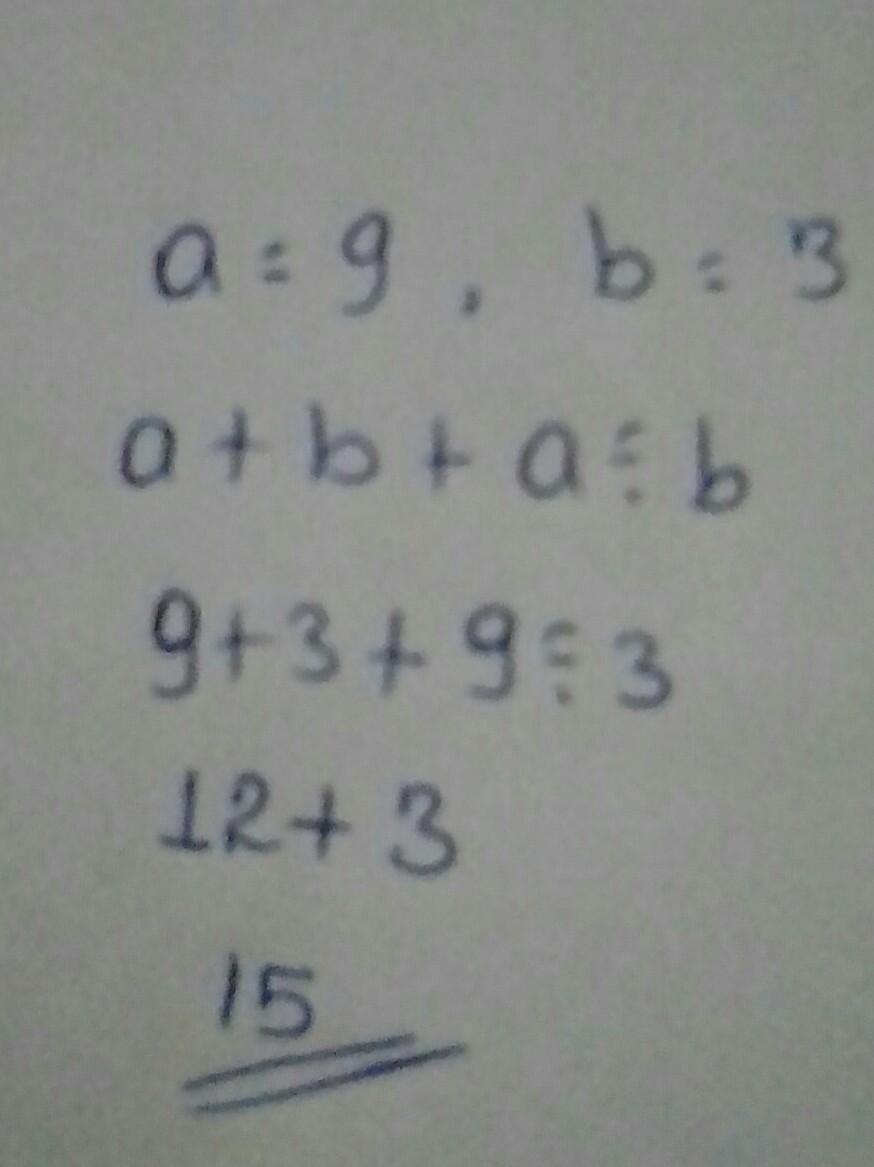 a = 9, b = 3
a + b + a ÷ b
9 + 3 + 9 ÷ 3
12 + 3
15